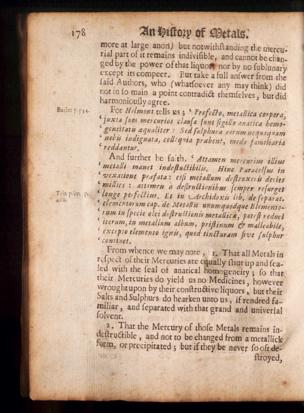 178 An History of Metals.
more at large anon) but notwithstanding the mercu-
rial part of it remains indivisible, and cannot be chan-
ged by the power of that liquor nor by no sublunary
except its compeer. But take a full answer from the
said Authors, who (whatsoever any may think) did
not in to main a point contradict themselves, but did
harmoniously agree.
For Helmont tells us; Profecto, metallica corpora,
juxta suos mercurios clausa sunt sigillo anatica homo-
geneitatis æqualiter: Sed sulphura eorum nequaquam
nobis indignata, colloquia præbent, modo familiaria
reddantur.
And further he saith, Attamen mercurius illius
metalli manet indestructibilis. Hinc Paracelsus in
vexatione præfata: etsi metallum destruxeris decies
millies: attamen à destructionibus semper resurget
longe perfectius. Et in Archidoxis lib. de separat.
elementorum cap. de Metallis unumquodque Elemento-
rum in speciе
metallica, potest reduci
iterum, in metallum album, pristinum & malleabile,
excepto elemento ignis, quod tincturam sive sulphur
continet.
From whence we may note, 1. That all Metals in
respect of their Mercuries are equally shut up and sea-
led with the seal of anatical homogeneity; so that
their Mercuries do yield us no Medicines, however
wrought upon by their constructive liquors, but their
Salts and Sulphurs do hearken unto us, if rendred fa-
miliar, and separated with that grand and universal
solvent.
2. That the Mercury of those Metals remains in-
destructible, and not to be changed from a metallick
form, or precipitated; but if they be never so oft de-
stroyed,